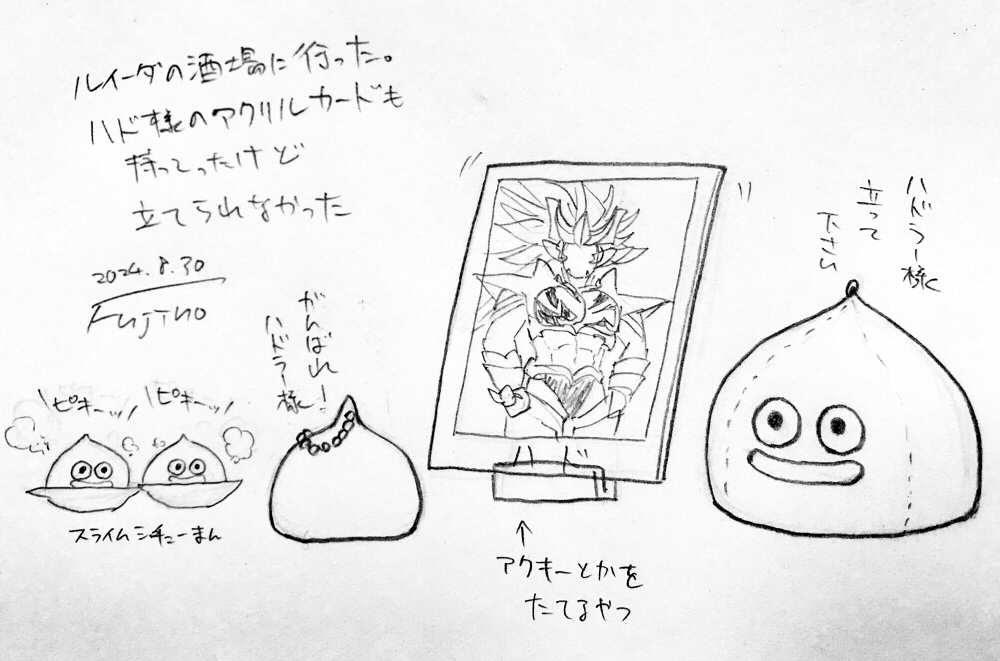 ルイーダの酒場に行った。
ハド様のアクリルカードも
持ってったけど
立てられなかった
2024.8.30
Fujino
ハドラー様
立って
下さい
がんばれ!
ハドラー様
ピキーッ
ピキーッ
スライムシチューまん
↑
アクキーとかを
たてるやつ